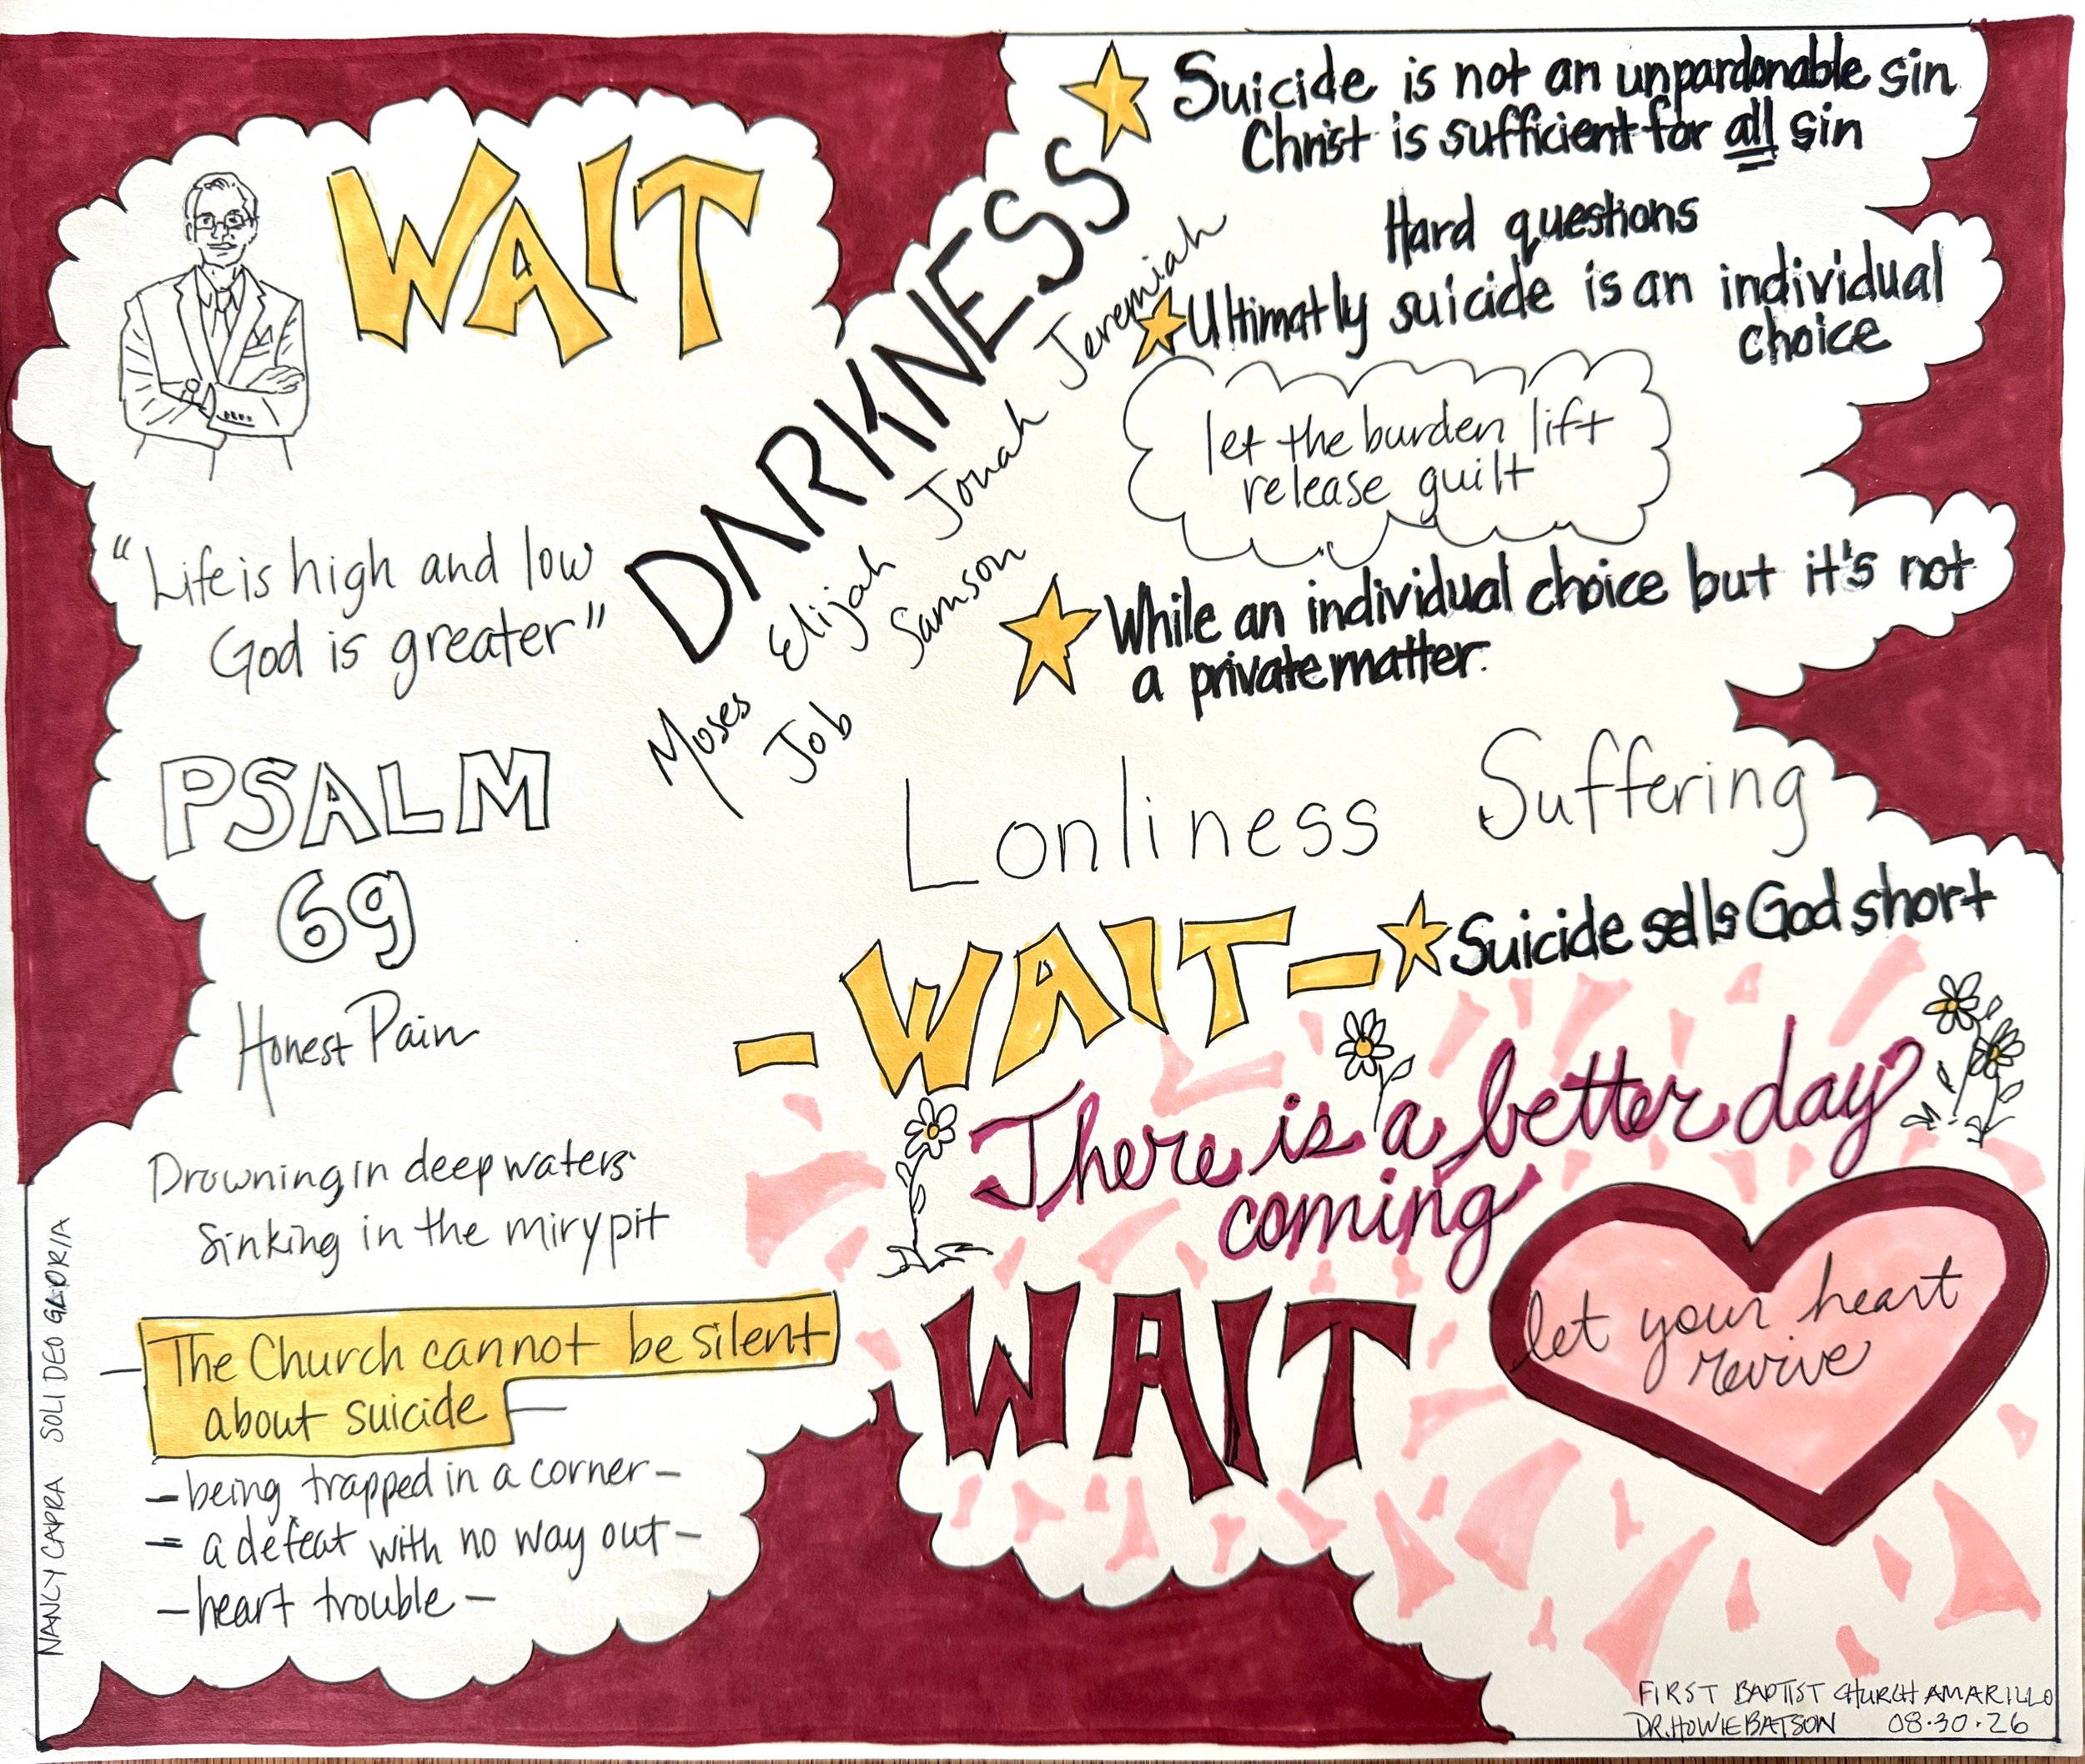 WAIT
"Life is high and low
God is greater"
PSALM
69
Honest Pain
Drowning in deep waters
Sinking in the miry pit
The Church cannot be silent
about suicide
- being trapped in a corner -
- a defeat with no way out -
- heart trouble -
NANCY CAPRA SOLI DEO GLORIA
DARKNESS
Moses Elijah Jonah Jeremiah
Job Samson
Suicide is not an unpardonable sin
Christ is sufficient for all sin
Hard questions
Ultimatly suicide is an individual
choice
let the burden lift
release guilt
While an individual choice but it's not
a private matter.
Lonliness Suffering
- WAIT -
Suicide sells God short
There is a better day
coming
WAIT
let your heart
revive
FIRST BAPTIST CHURCH AMARILLO
DR. HOWIE BATSON 08.30.26